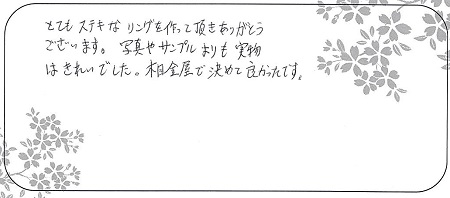 とてもステキなリングを作って頂きありがとう
ございます。写真やサンプルよりも実物
はきれいでした。杢目金屋で決めて良かったです。